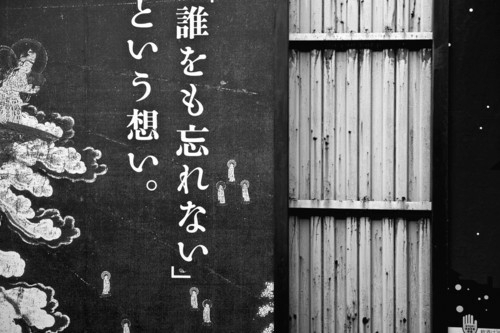 「誰をも忘れない」
という想い。